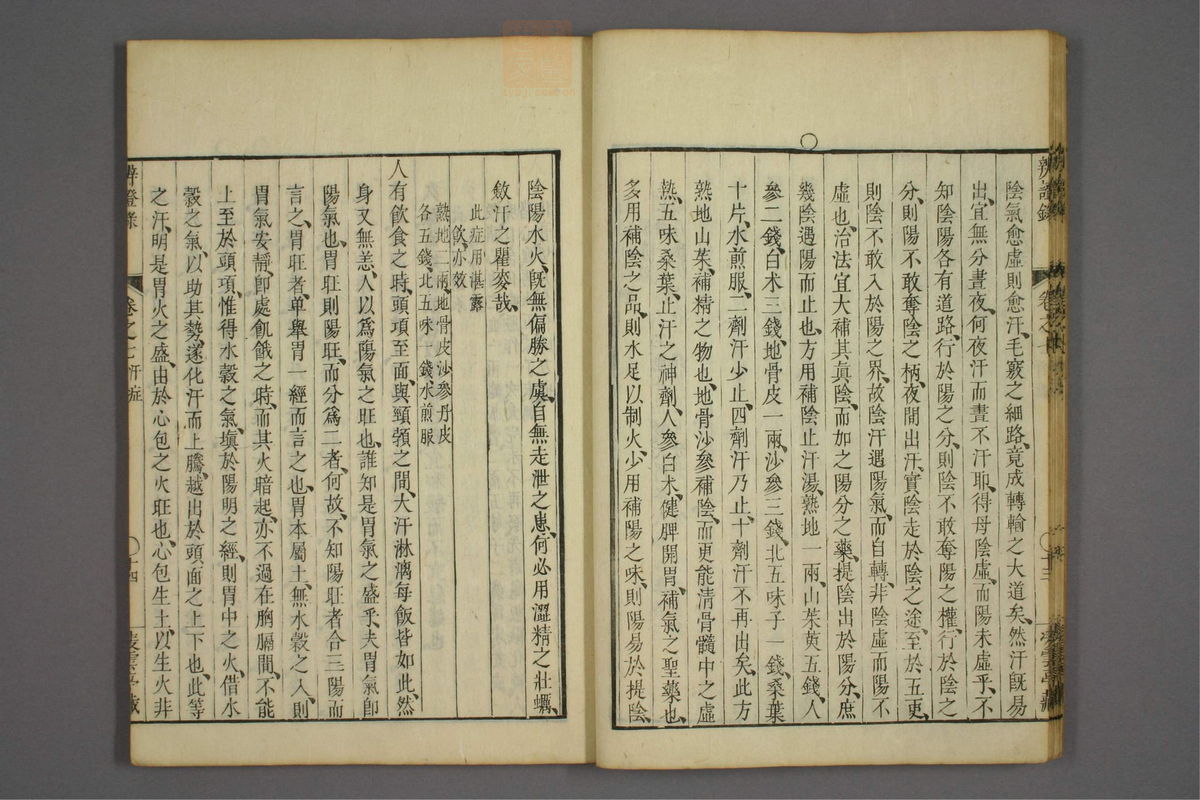 辨證錄
卷之七
十三
陰氣愈虛則愈汗、毛竅之細路、竟成轉輸之大道矣、然汗既易
出、宜無分晝夜、何夜汗而晝不汗耶、得母陰虛、而陽未虛乎、不
知陰陽各有道路、行於陽之分、則陰不敢奪陽之權、行於陰之
分、則陽不敢奪陰之柄、夜間出汗、實陰走於陰之途、至於五更、
則陰不敢入於陽之界、故陰汗遇陽氣、而自轉、非陰虛而陽不
虛也、治法宜大補其眞陰、而加之陽分之藥、提陰出於陽分、庶
幾陰遇陽而止也、方用補陰止汗湯、熟地一兩、山茱萸五錢、人
參二錢、白朮三錢、地骨皮一兩、沙參三錢、北五味子一錢、桑葉
十片、水煎服、二劑汗少止、四劑汗乃止、十劑汗不再出矣、此方
熟地山茱、補精之物也、地骨沙參補陰、而更能清骨髓中之虛
熱、五味桑葉、止汗之神劑、人參白朮、健脾開胃、補氣之聖藥也、
多用補陰之品、則水足以制火、少用補陽之味、則陽易於提陰、
陰陽水火、既無偏勝之虞、自無走泄之患、何必用澀精之牡蠣、
斂汗之瞿麥哉、
此症用湛露
飲、亦效
熟地二兩、地骨皮沙參丹皮
各五錢、北五味一錢水煎服
人有飲食之時、頭項至面、與頸頷之間、大汗淋漓每飯皆如此、然
身又無恙、人以爲陽氣之旺也、誰知是胃氣之盛乎、夫胃氣卽
陽氣也、胃旺則陽旺、而分爲二者、何故、不知陽旺者合三陽而
言之、胃旺者、单舉胃一經而言之也、胃本屬土、無水穀之入、則
胃氣安靜、卽處飢餓之時、而其火暗起、亦不過在胸膈間、不能
上至於頭項、惟得水穀之氣、塡於陽明之經、則胃中之火、借水
穀之氣、以助其勢、遂化汗而上騰、越出於頭面之上下也、此等
之汗、明是胃火之盛、由於心包之火旺也、心包生土、以生火非
辨證錄
卷之七汗症
十四